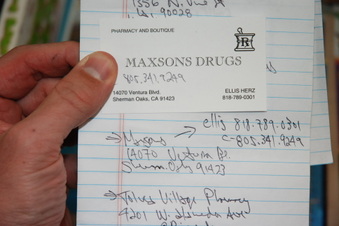 1556 N.
L.A. 90028
PHARMACY AND BOUTIQUE
MAXSONS DRUGS
805.341.9249
14070 Ventura Blvd.
Sherman Oaks, CA 91423
ELLIS HERZ
818-789-0301
ellis 818.789.0301
c-805.341.9249
14070 Ventura Bl.
Sherm. Oaks 91423
Village Pharmacy
4201 W. Alameda Ave